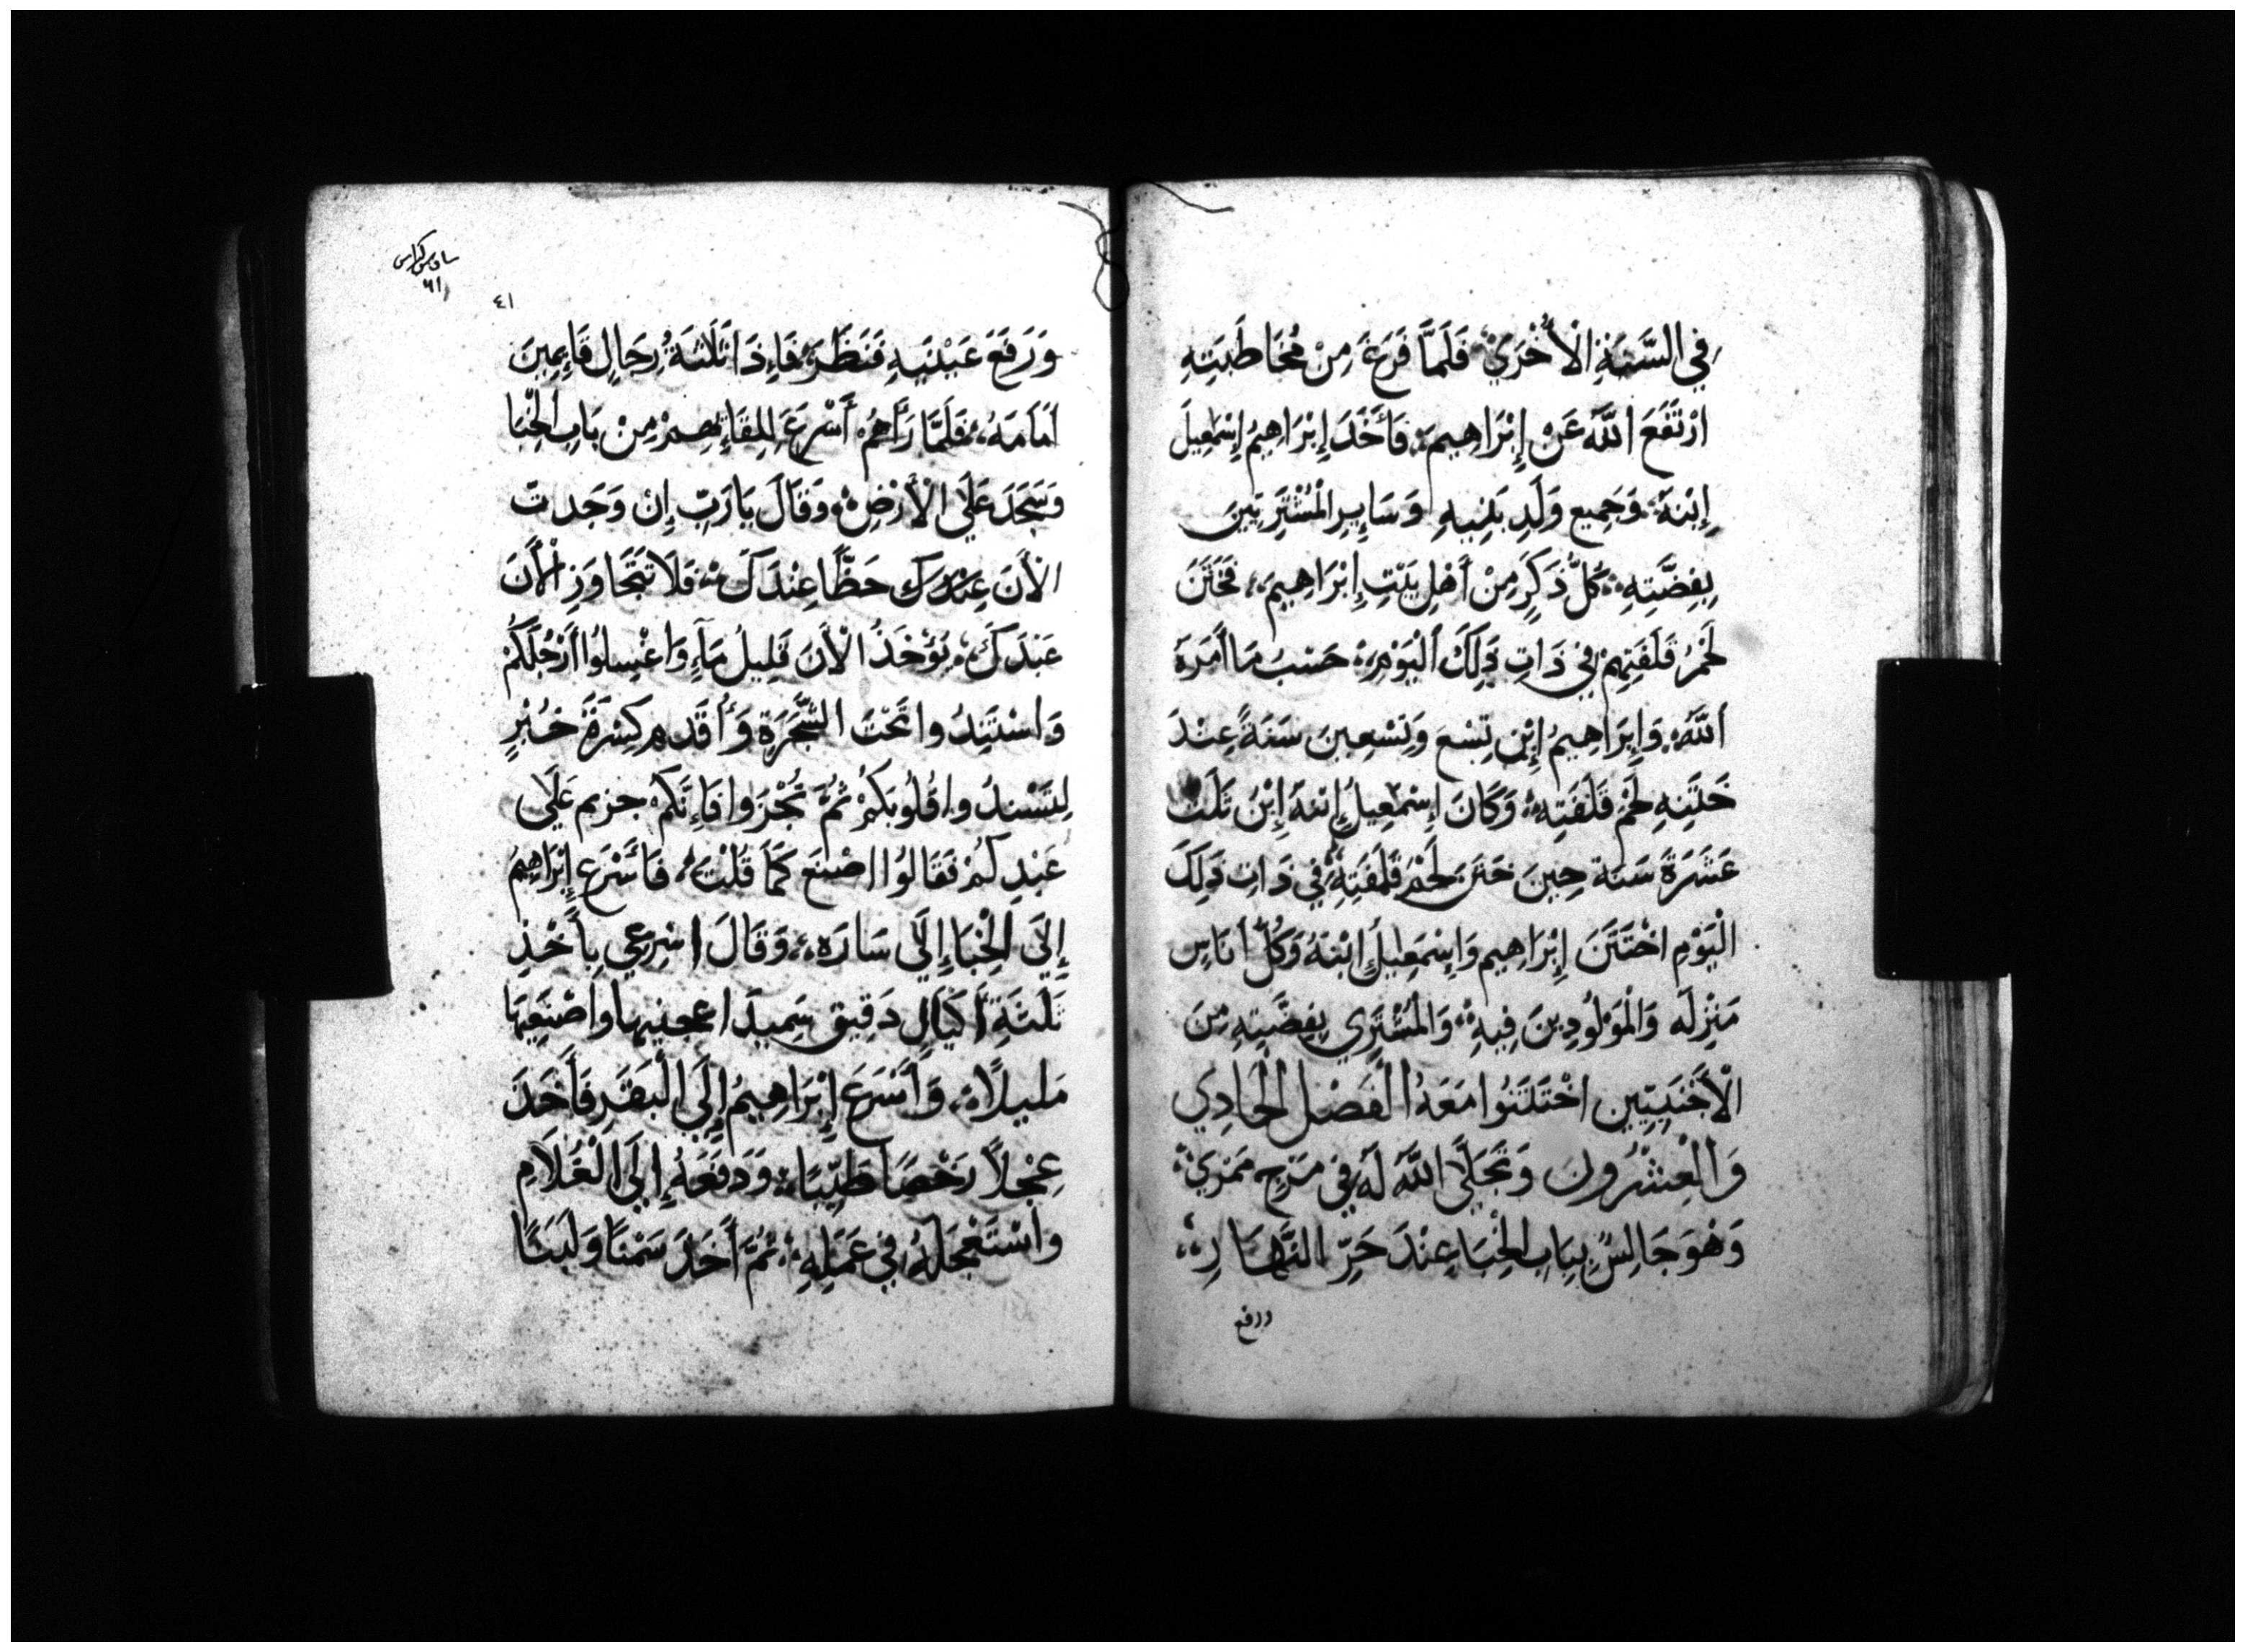 فِي السَّنَةِ الْأُخْرَيْ فَلَمَّا فَرَغَ مِنْ مُخَاطَبَتِهِ
ارْتَفَعَ اللَّهُ عَنْ إِبْرَاهِيمَ فَأَخَدَ إِبْرَاهِيمُ إِسْمَعِيلَ
إِبْنَهُ وَجَمِيع وَلَدِ بَنِيهِ وَسَايِرِ الْمُشْتَرَيِينَ
بِفِضَّتِهِ كُلُّ ذَكَرٍ مِنْ أَهْلِ بَيْتِ إِبْرَاهِيمَ فَخَتَنَ
لَحْمُ قَلَفَتِهِمْ فِي دَاتِ دَلِكَ الْيَوْمِ حَسْبُ مَا أَمَرَهُ
اللَّهُ وَإِبْرَاهِيمُ إِبْنِ تِسْعِ وَتِسْعِينَ سَنَةً عِنْدَ
خَتْنِهِ لَحْمُ قَلَفَتِهِ وَكَانَ إِسْمَعِيلُ إِبْنَهُ إِبْنَ تَلَتْ
عَشَرَةَ سَنَة حِينَ خَتَنَ لَحْمُ قَلَفَتِهِ فِي دَاتِ دَلِكَ
الْيَوْمِ اخْتَتَنَ إِبْرَاهِيم وَإِسْمَعِيلَ ابْنَهُ وَكُلُّ أنَاسِ
مَنْزِلَه وَالْمَوْلُودِينَ فِيهِ وَالْمُشْتَرِي بِفِضَّتِهِ مِنَ
الْأَجْنَبِيِّين اخْتَتَنُوا مَعَهُ الْفَصْل الْحَادِي
وَالْعِشْرُونَ وَتَجَلَّي اللَّهُ لَهُ فِي مَرْجِ مَمْرَيْ
وَهْوَ جَالِسٌ بِبَابِ الْخِبَا عِنْدَ حَرِّ النَّهَارِ
ورفع
سادس كراس
٦١
٤١
وَرَفَعَ عَيْنَيهِ فَنَظَرَ فَإِذَا تَلَتَةُ رِجَالٍ قَايِمِينَ
أَمَامَهُ فَلَمَّا رَأَهُمْ أَسْرَعَ لِلِقَايِهِمْ مِنْ بَابِ الْخِبَا
وَسَجَدَ عَلَي الْأَرْضِ وَقَالَ يَا رَبِّ إِنْ وَجَدتّ
الْأَنَ عِنْدَكَ حَظًّا عِنْدَكَ فَلَا تَتَجَاوَزِ الْأَنَ
عَبْدَكَ يُؤْخَذُ الْأَنَ قَلِيلُ مَآءٍ وَاغْسِلُوا أَرْجُلَكُمْ
وَاسْتَنِدُوا تَحْتَ الشَّجَرَةِ وَأُقَدِم كِسْرَةَ خُبْزٍ
لِتَسْنِدُوا قُلُوبَكُمْ ثُمَّ تَجُزُوا فَإِنَّكُمْ جزيم عَلَي
عَبْدِكُمْ فَقَالُوا اصْنَعَ كَمَا قُلْتَ فَأَسْرَعِ إِبْرَاهِيمُ
إِلَي الْخِبَا إِلَي سَارَه وَقَالَ اسْرِعِي بِأَخْذِ
تَلَتَةِ أَكْيَالِ دَقِيق سَمِيد اعجنيها وَاصْنَعِيهَا
مَلِيلاً وَأَسْرَعَ إِبْرَاهِيمُ إِلَي الْبَقَرِ فَأَخَدَ
عِجْلاً رَخْصًا طَيِّبًا وَدَفَعَهُ إِلَي الْغُلَامِ
وَاسْتَعْجَلَهُ فِي عَمَلِهِ ثُمَّ أَخَدَ سَمْنًا وَلَبَنًا